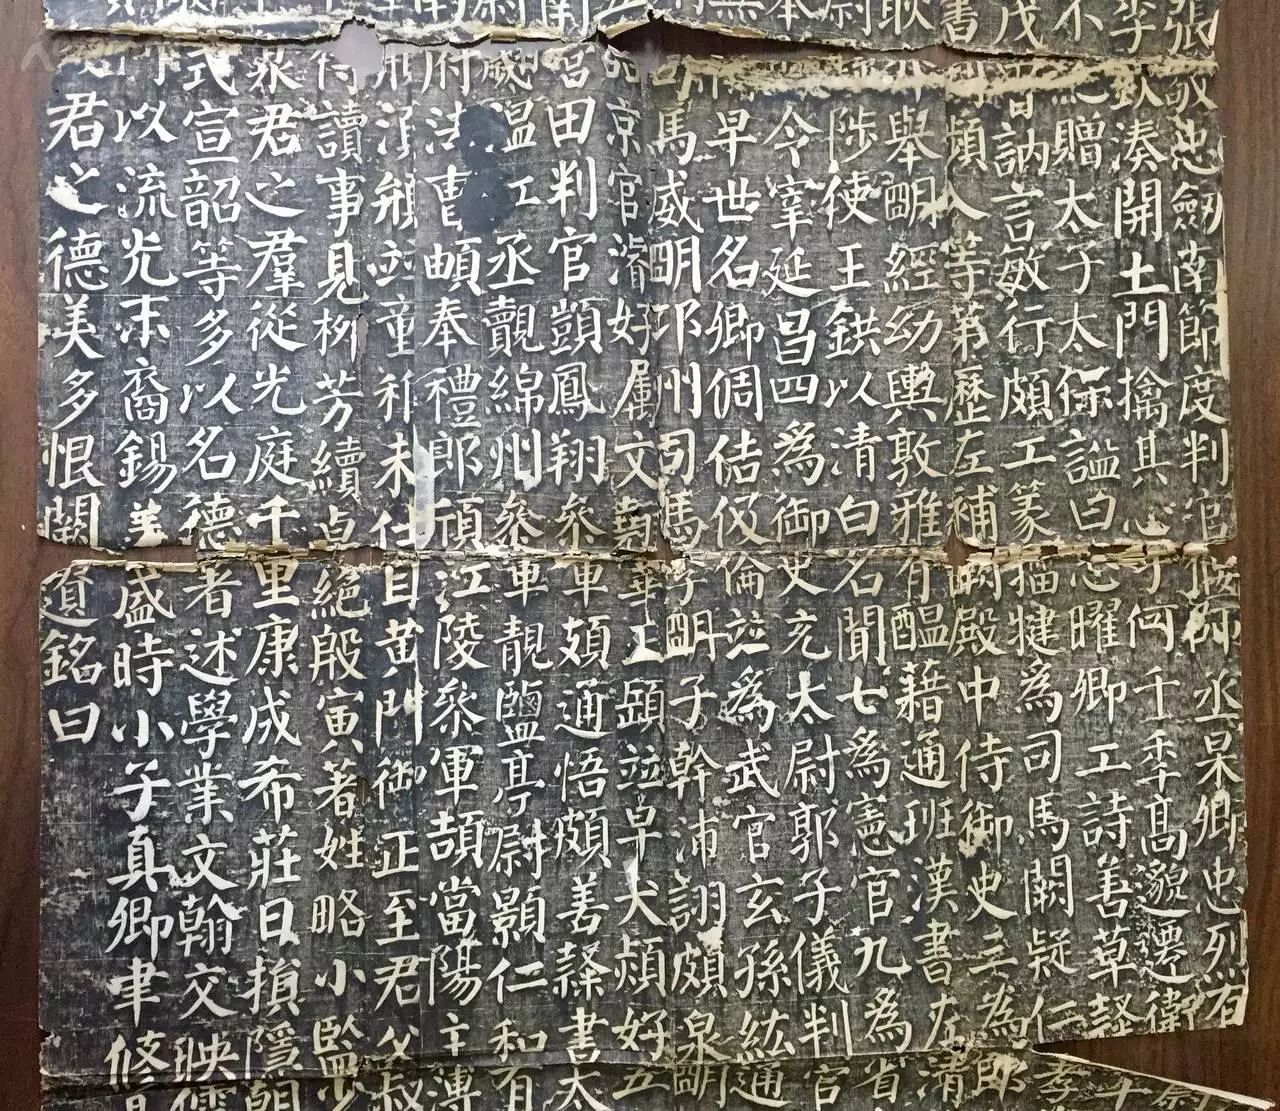 張敬忠劒南節度判官偃師丞杲卿忠烈有
李欽湊開土門擒其心手何千年高邈遷衛
贈太子太保謚曰忠曜卿工詩善草隸十
茂曾訥言敏行頗工篆籀犍為司馬闕疑仁孝
書頻入等第歷左補闕殿中侍御史三為郎
耿介舉明經幼輿敦雅有醞藉通班漢書左清
尉陟使王鉷以清白名聞七為憲官九為省
本今宰延昌四為御史充太尉郭子儀判官
無早世名卿倜佶伋倫並為武官玄孫紘通
司馬威明邛州司馬季明子幹沛詡頗泉明
五品京官濬好屬文翹華正頣並早夭熲好五
南宮田判官顗鳳翔參軍頗通悟頗善隸書太
尉歲溫江丞覿綿州參軍靚鹽亭尉顥仁和有
南府法曹頔奉禮郎頎江陵參軍頡當陽主簿
須頖並童稚未仕自黃門御正至君父叔
侍讀事見柳芳續卓絕殷寅著姓略小監少
泉君之羣從光庭千里康成希莊日損隱朝
式宣韶等多以名德著述學業文翰交映儒
以流光末裔錫羨盛時小子真卿聿修
君之德美多恨闕遺銘曰